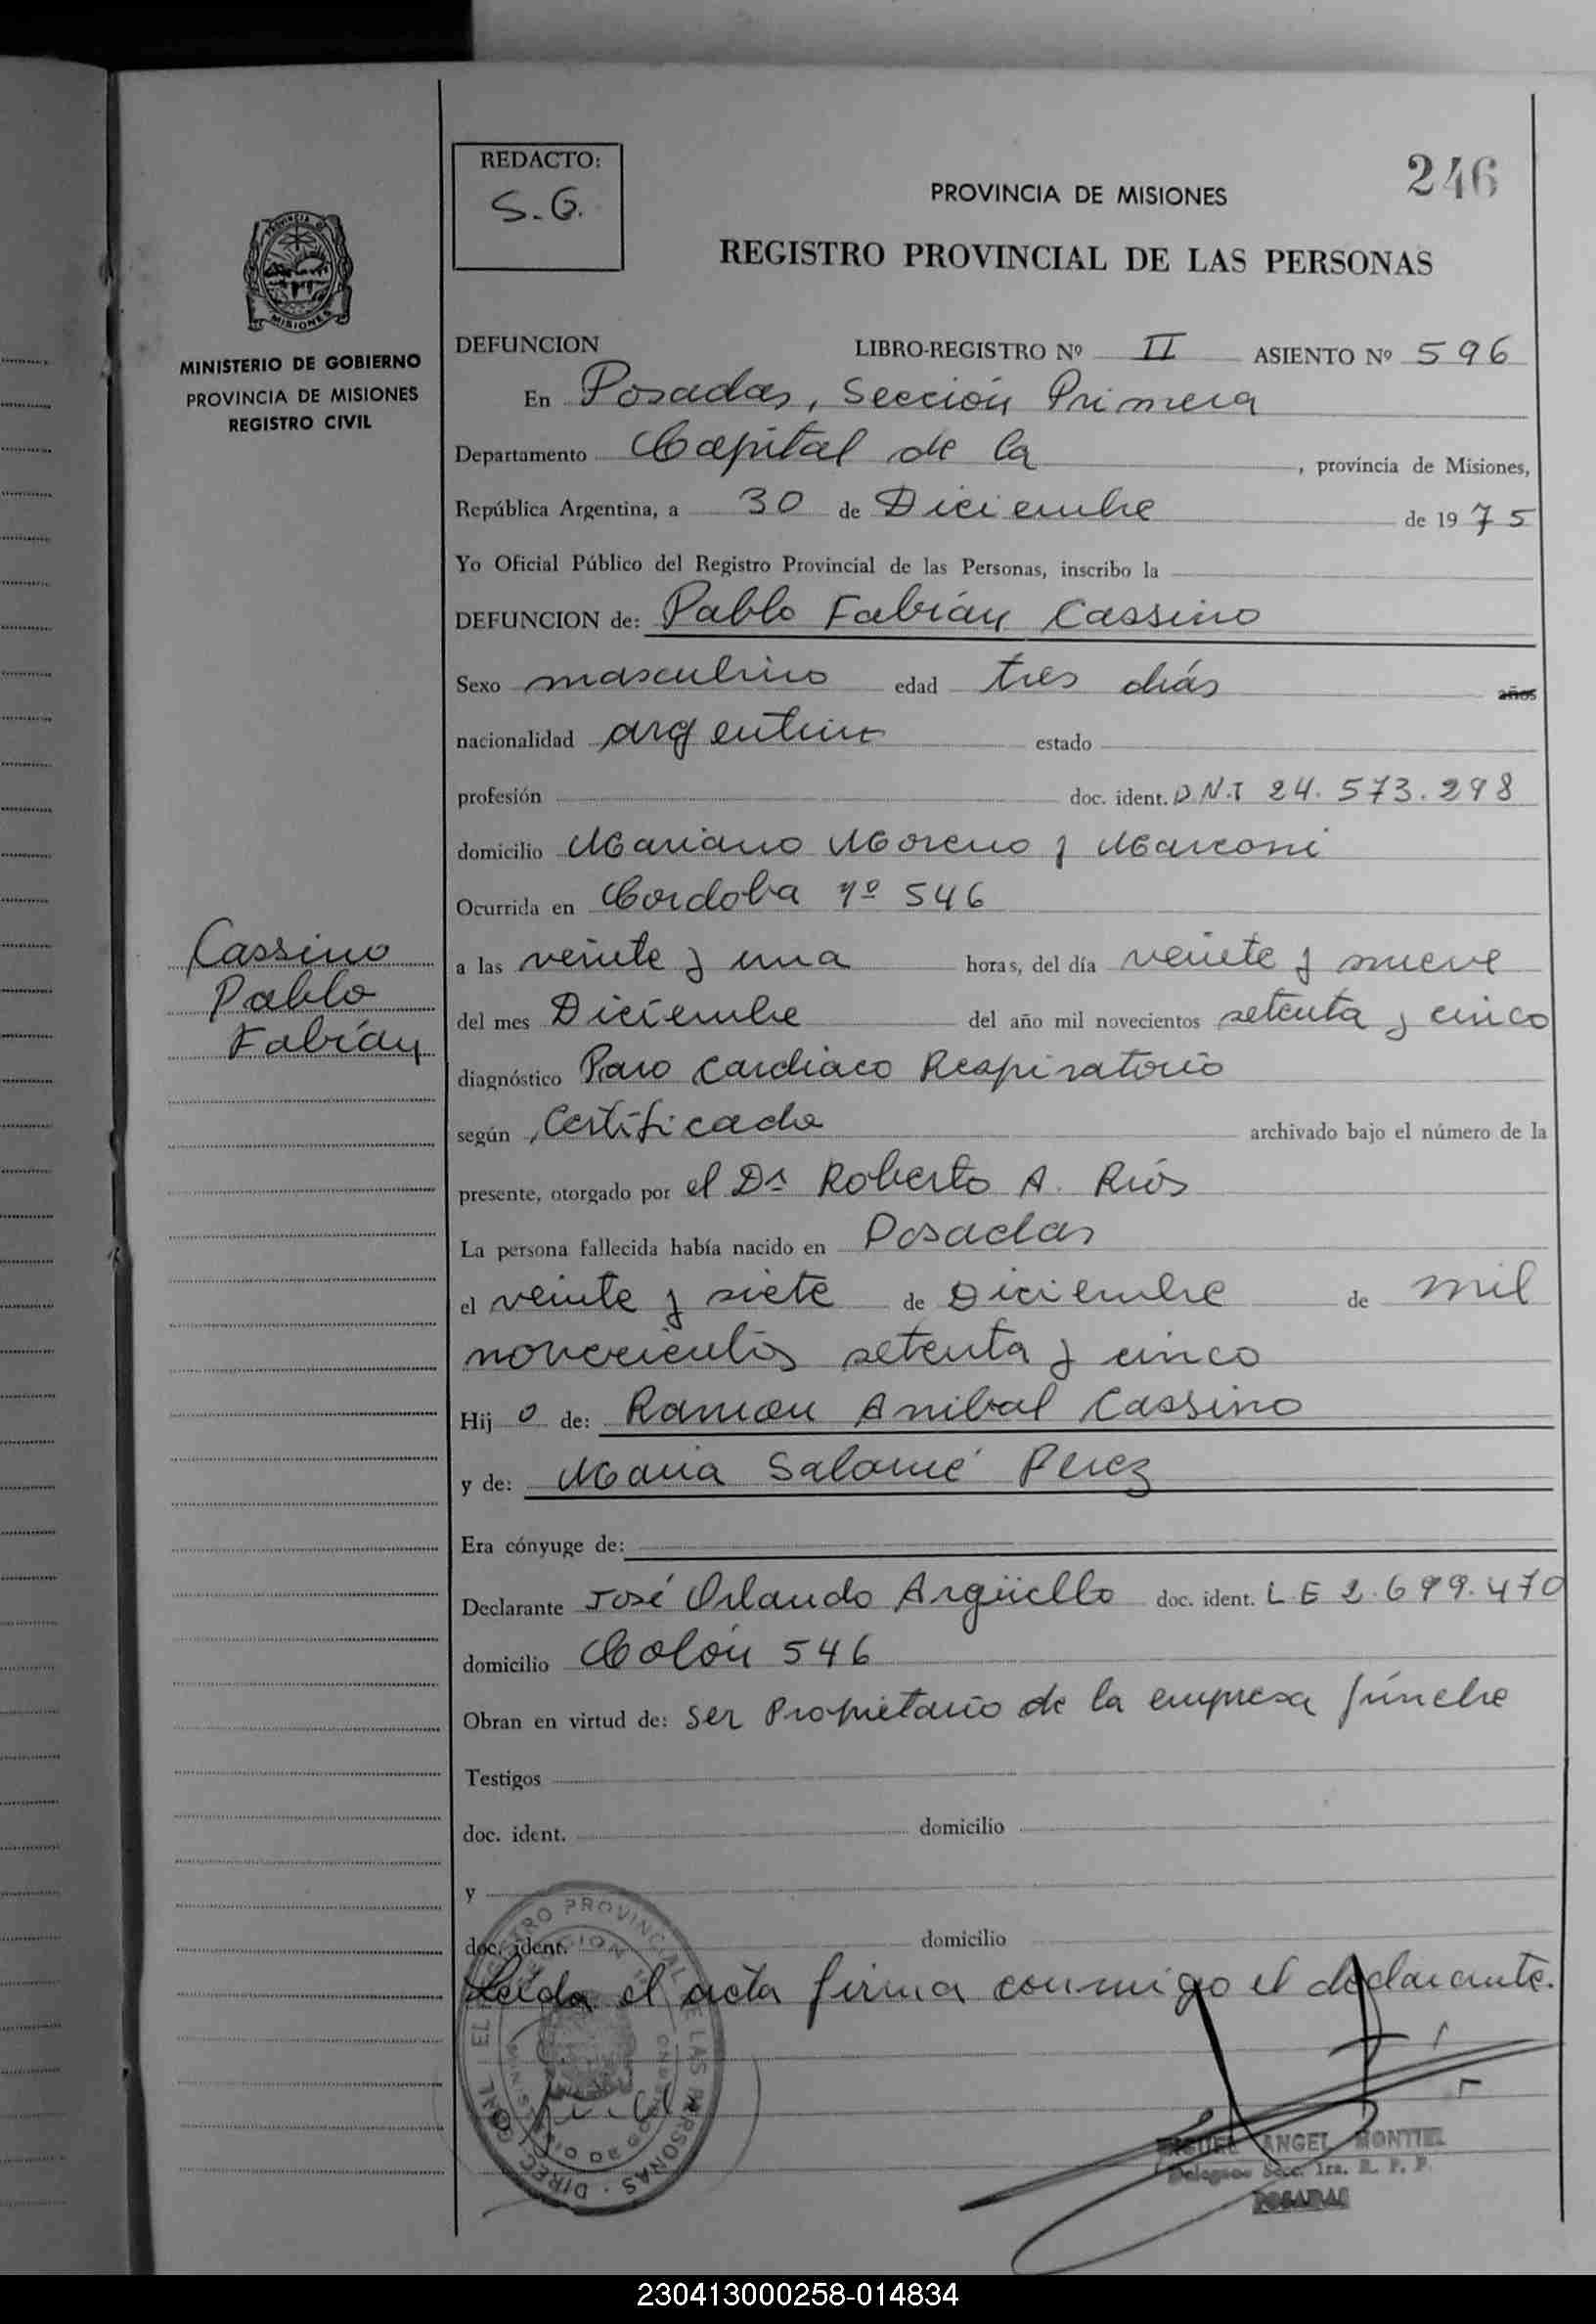 246
REDACTO:
S. G.
PROVINCIA DE MISIONES
REGISTRO PROVINCIAL DE LAS PERSONAS
MISIONES
MINISTERIO DE GOBIERNO
PROVINCIA DE MISIONES
REGISTRO CIVIL
DEFUNCION LIBRO-REGISTRO Nº II ASIENTO Nº 596
En Posadas, Sección Primera
Departamento Capital de la , provincia de Misiones,
República Argentina, a 30 de Diciembre de 1975
Yo Oficial Público del Registro Provincial de las Personas, inscribo la
DEFUNCION de: Pablo Fabián Cassino
Sexo masculino edad tres días años
nacionalidad argentino estado
profesión doc. ident. D.N.I 24.573.298
domicilio Mariano Moreno y Marconi
Ocurrida en Cordoba nº 546
a las veinte y una horas, del día veinte y nueve
del mes Diciembre del año mil novecientos setenta y cinco
diagnóstico Paro Cardiaco Respiratorio
según Certificado archivado bajo el número de la
presente, otorgado por el Dr Roberto A. Ríos
La persona fallecida había nacido en Posadas
el veinte y siete de Diciembre de mil
novecientos setenta y cinco
Hij o de: Ramon Anibal Cassino
y de: Maria Salomé Perez
Era cónyuge de:
Declarante José Orlando Argüello doc. ident. L E 2.699.470
domicilio Colón 546
Obran en virtud de: ser Propietario de la empresa fúnebre
Testigos
doc. ident. domicilio
y
doc. ident. domicilio
Leída el acta firma conmigo el declarante.
Cassino
Pablo
Fabián
MIGUEL ANGEL MONTIEL
Delegado Secc. 1ra. R. P. P.
POSADAS
230413000258-014834